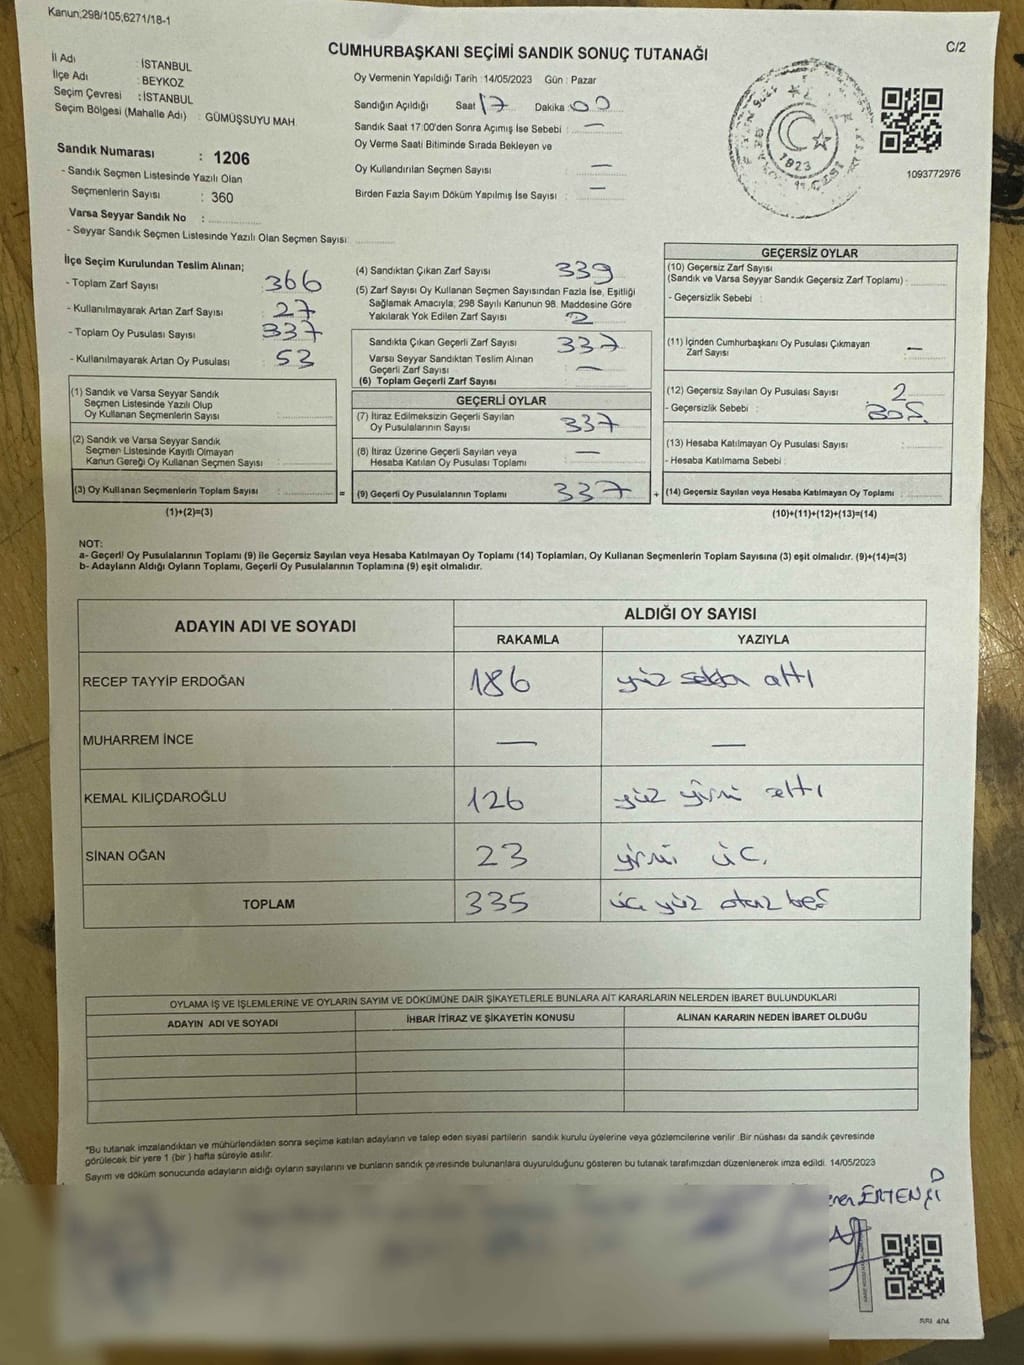 Kanun;298/105,6271/18-1
C/2
CUMHURBAŞKANI SEÇİMİ SANDIK SONUÇ TUTANAĞI
İl Adı : İSTANBUL
İlçe Adı : BEYKOZ
Seçim Çevresi : İSTANBUL
Seçim Bölgesi (Mahalle Adı) : GÜMÜŞSUYU MAH.
Sandık Numarası : 1206
- Sandık Seçmen Listesinde Yazılı Olan
Seçmenlerin Sayısı : 360
Varsa Seyyar Sandık No :
- Seyyar Sandık Seçmen Listesinde Yazılı Olan Seçmen Sayısı:
Oy Vermenin Yapıldığı Tarih :14/05/2023 Gün : Pazar
Sandığın Açıldığı Saat 17 Dakika 00
Sandık Saat 17:00'den Sonra Açımış İse Sebebi : —
Oy Verme Saati Bitiminde Sırada Bekleyen ve
Oy Kullandırılan Seçmen Sayısı : —
Birden Fazla Sayım Döküm Yapılmış İse Sayısı : —
1923
1093772976
İlçe Seçim Kurulundan Teslim Alınan;
- Toplam Zarf Sayısı 366
- Kullanılmayarak Artan Zarf Sayısı : 27
- Toplam Oy Pusulası Sayısı 337
- Kullanılmayarak Artan Oy Pusulası : 53
(1) Sandık ve Varsa Seyyar Sandık
Seçmen Listesinde Yazılı Olup
Oy Kullanan Seçmenlerin Sayısı :
(2) Sandık ve Varsa Seyyar Sandık
Seçmen Listesinde Kayıtlı Olmayan
Kanun Gereği Oy Kullanan Seçmen Sayısı :
(3) Oy Kullanan Seçmenlerin Toplam Sayısı : =
(1)+(2)=(3)
(4) Sandıktan Çıkan Zarf Sayısı 339
(5) Zarf Sayısı Oy Kullanan Seçmen Sayısından Fazla İse, Eşitliği
Sağlamak Amacıyla, 298 Sayılı Kanunun 98. Maddesine Göre
Yakılarak Yok Edilen Zarf Sayısı : 2
Sandıkta Çıkan Geçerli Zarf Sayısı : 337
Varsa Seyyar Sandıktan Teslim Alınan
Geçerli Zarf Sayısı : —
(6) Toplam Geçerli Zarf Sayısı :
GEÇERLİ OYLAR
(7) İtiraz Edilmeksizin Geçerli Sayılan
Oy Pusulalarının Sayısı : 337
(8) İtiraz Üzerine Geçerli Sayılan veya
Hesaba Katılan Oy Pusulası Toplamı : —
(9) Geçerli Oy Pusulalarının Toplamı : 337 +
GEÇERSİZ OYLAR
(10) Geçersiz Zarf Sayısı
(Sandık ve Varsa Seyyar Sandık Geçersiz Zarf Toplamı) :
- Geçersizlik Sebebi :
(11) İçinden Cumhurbaşkanı Oy Pusulası Çıkmayan
Zarf Sayısı : —
(12) Geçersiz Sayılan Oy Pusulası Sayısı : 2
- Geçersizlik Sebebi : BOŞ.
(13) Hesaba Katılmayan Oy Pusulası Sayısı :
- Hesaba Katılmama Sebebi :
(14) Geçersiz Sayılan veya Hesaba Katılmayan Oy Toplamı :
(10)+(11)+(12)+(13)=(14)
NOT:
a- Geçerli Oy Pusulalarının Toplamı (9) ile Geçersiz Sayılan veya Hesaba Katılmayan Oy Toplamı (14) Toplamları, Oy Kullanan Seçmenlerin Toplam Sayısına (3) eşit olmalıdır. (9)+(14)=(3)
b- Adayların Aldığı Oyların Toplamı, Geçerli Oy Pusulalarının Toplamına (9) eşit olmalıdır.
ADAYIN ADI VE SOYADI ALDIĞI OY SAYISI
RAKAMLA YAZIYLA
RECEP TAYYİP ERDOĞAN 186 yüz seksen altı
MUHARREM İNCE — —
KEMAL KILIÇDAROĞLU 126 yüz yirmi altı
SİNAN OĞAN 23 yirmi üç.
TOPLAM 335 üç yüz otuz beş
OYLAMA İŞ VE İŞLEMLERİNE VE OYLARIN SAYIM VE DÖKÜMÜNE DAİR ŞİKAYETLERLE BUNLARA AİT KARARLARIN NELERDEN İBARET BULUNDUKLARI
ADAYIN ADI VE SOYADI İHBAR İTİRAZ VE ŞİKAYETİN KONUSU ALINAN KARARIN NEDEN İBARET OLDUĞU
*Bu tutanak imzalandıktan ve mühürlendikten sonra seçime katılan adayların ve talep eden siyasi partilerin sandık kurulu üyelerine veya gözlemcilerine verilir. Bir nüshası da sandık çevresinde
görülecek bir yere 1 (bir) hafta süreyle asılır.
Sayım ve döküm sonucunda adayların aldığı oyların sayılarını ve bunların sandık çevresinde bulunanlara duyurulduğunu gösteren bu tutanak tarafımızdan düzenlenerek imza edildi. 14/05/2023